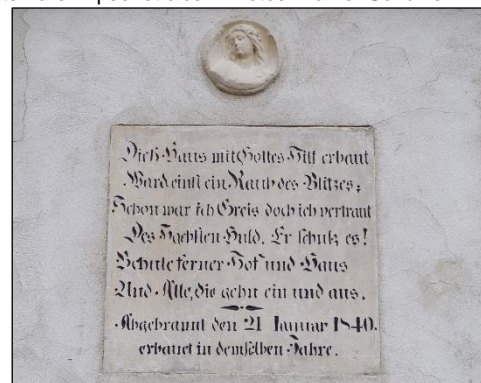 Dieß Haus mit Gottes Hilf erbaut
Ward einst ein Raub des Blitzes;
Schon war ich Greis doch ich vertraut
Des Höchsten Huld. Er schutz es!
Behüte ferner Hof und Haus
Und Alle, die gehn ein und aus.
Abgebrannt den 21 Januar 1840.
erbauet in demselben Jahre.